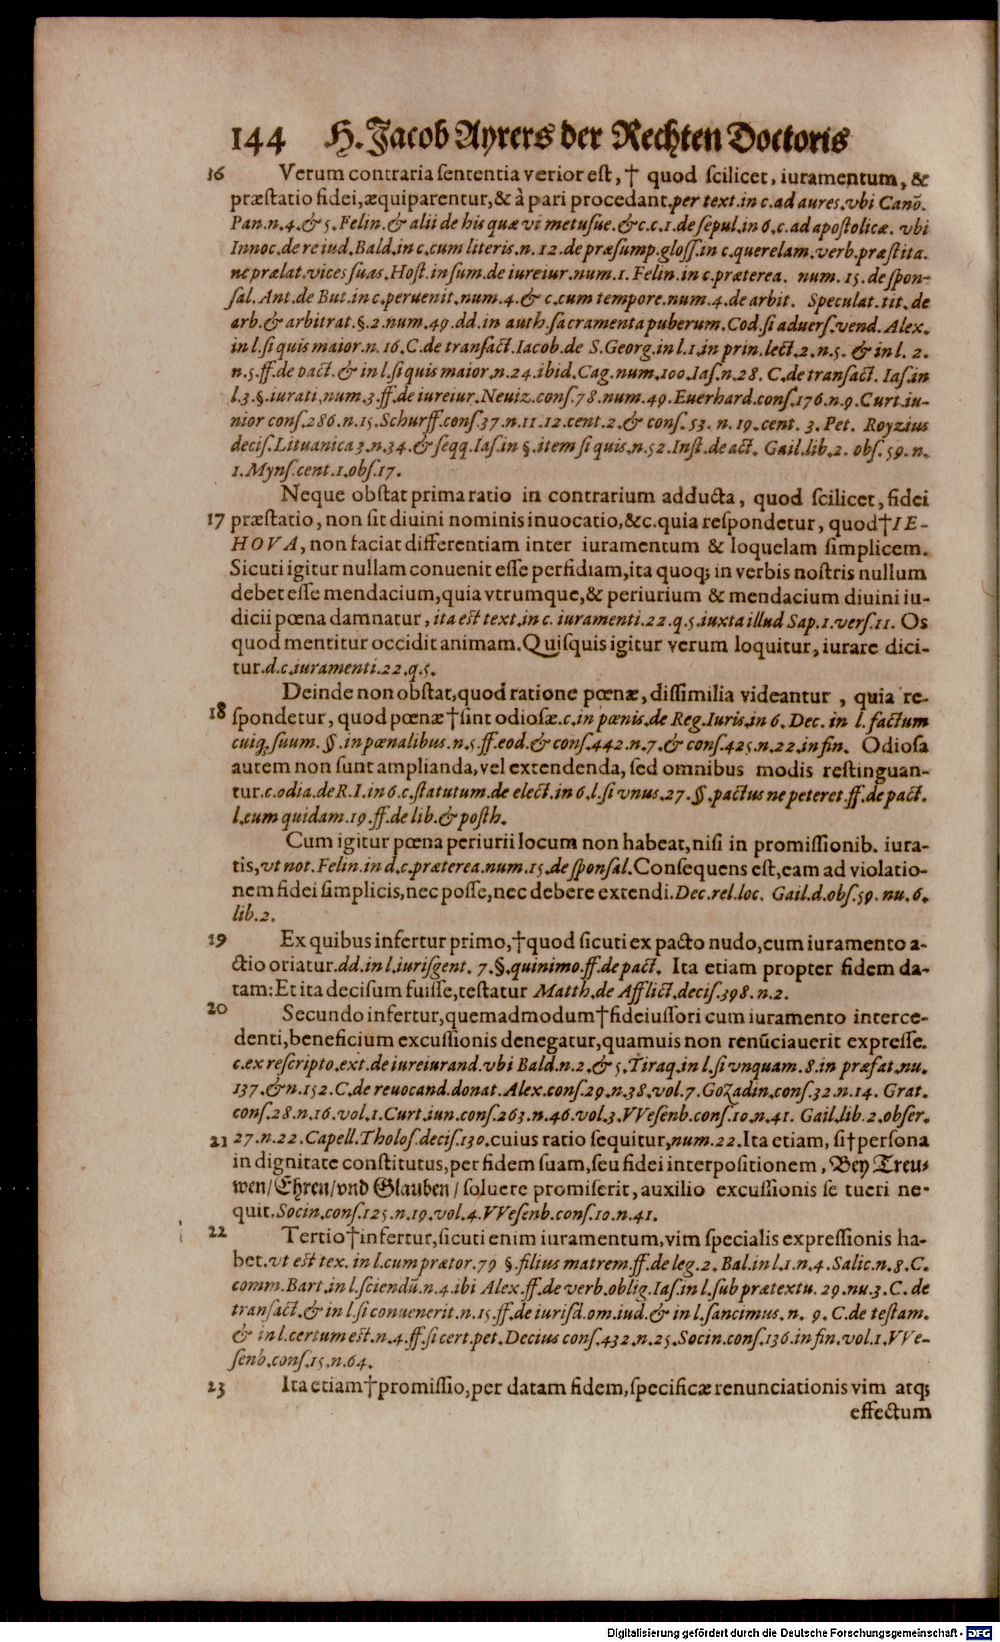 144 H. Jacob Ayrers der Rechten Doctoris
16 Verum contraria sententia verior est, † quod scilicet, iuramentum, &
præstatio fidei, æquiparentur, & à pari procedant. per text. in c. ad aures. vbi Canō.
Pan. n. 4. & 5. Felin. & alii de his quæ vi metusúe. & c. c. 1. de sepul. in 6. c. ad apostolicæ. vbi
Innoc. de re iud. Bald. in c. cum literis. n. 12. de præsump. gloss. in c. querelam. verb. præstita.
ne prælat. vices suas. Host. in sum. de iureiur. num. 1. Felin. in c. præterea. num. 15. de spon-
sal. Ant. de But. in c. peruenit. num. 4. & c. cum tempore. num. 4. de arbit. Speculat. tit. de
arb. & arbitrat. §. 2. num. 49. dd. in auth. sacramenta puberum. Cod. si aduers. vend. Alex.
in l. si quis maior. n. 16. C. de transact. Iacob. de S. Georg. in l. 1. in prin. lect. 2. n. 5. & in l. 2.
n. 5. ff. de pact. & in l. si quis maior. n. 24. ibid. Cag. num. 100. Ias. n. 28. C. de transact. Ias. in
l. 3. §. iurati, num. 3. ff. de iureiur. Neuiz. cons. 78. num. 49. Euerhard. cons. 176. n. 9. Curt. iu-
nior cons. 286. n. 15. Schurff. cons. 37. n. 11. 12. cent. 2. & cons. 53. n. 19. cent. 3. Pet. Royzius
decis. Lituanica 3. n. 34. & seqq. Ias. in §. item si quis. n. 52. Inst. de act. Gail. lib. 2. obs. 59. n.
1. Myns. cent. 1. obs. 17.
Neque obstat prima ratio in contrarium adducta, quod scilicet, fidei
17 præstatio, non sit diuini nominis inuocatio, &c. quia respondetur, quod † IE-
HOVA, non faciat differentiam inter iuramentum & loquelam simplicem.
Sicuti igitur nullam conuenit esse perfidiam, ita quoq; in verbis nostris nullum
debet esse mendacium, quia vtrumque, & periurium & mendacium diuini iu-
dicii pœna damnatur, ita est text. in c. iuramenti. 22. q. 5. iuxta illud Sap. 1. vers. 11. Os
quod mentitur occidit animam. Quisquis igitur verum loquitur, iurare dici-
tur. d. c. iuramenti. 22. q. 5.
Deinde non obstat, quod ratione pœnæ, dissimilia videantur, quia re-
18 spondetur, quod pœnæ † sint odiosæ. c. in pœnis. de Reg. Iuris. in 6. Dec. in l. factum
cuiq; suum. §. in pœnalibus. n. 5. ff. eod. & cons. 442. n. 7. & cons. 425. n. 22. in fin. Odiosa
autem non sunt amplianda, vel extendenda, sed omnibus modis restinguan-
tur. c. odia. de R. I. in 6. c. statutum. de elect. in 6. l. si vnus. 27. §. pactus ne peteret. ff. de pact.
l. cum quidam. 19. ff. de lib. & posth.
Cum igitur pœna periurii locum non habeat, nisi in promissionib. iura-
tis, vt not. Felin. in d. c. præterea. num. 15. de sponsal. Consequens est, eam ad violatio-
nem fidei simplicis, nec posse, nec debere extendi. Dec. rel. loc. Gail. d. obs. 59. nu. 6.
lib. 2.
19 Ex quibus infertur primo, † quod sicuti ex pacto nudo, cum iuramento a-
ctio oriatur. dd. in l. iurisgent. 7. §. quinimo. ff. de pact. Ita etiam propter fidem da-
tam: Et ita decisum fuisse, testatur Matth. de Afflict. decis. 398. n. 2.
20 Secundo infertur, quemadmodum † fideiussori cum iuramento interce-
denti, beneficium excussionis denegatur, quamuis non renūciauerit expresse.
c. ex rescripto. ext. de iureiurand. vbi Bald. n. 2. & 5. Tiraq. in l. si vnquam. 8. in præfat. nu.
137. & n. 152. C. de reuocand. donat. Alex. cons. 29. n. 38. vol. 7. Gozadin. cons. 32. n. 14. Grat.
cons. 28. n. 16. vol. 1. Curt. iun. cons. 263. n. 46. vol. 3. VVesenb. cons. 10. n. 41. Gail. lib. 2. obser.
21 27. n. 22. Capell. Tholos. decis. 130. cuius ratio sequitur, num. 22. Ita etiam, si † persona
in dignitate constitutus, per fidem suam, seu fidei interpositionem, Bey Treu-
wen/ Ehren/ vnd Glauben/ soluere promiserit, auxilio excussionis se tueri ne-
quit. Socin. cons. 125. n. 19. vol. 4. VVesenb. cons. 10. n. 41.
22 Tertio † infertur, sicuti enim iuramentum, vim specialis expressionis ha-
bet. vt est tex. in l. cum prætor. 79 §. filius matrem. ff. de leg. 2. Bal. in l. 1. n. 4. Salic. n. 8. C.
comm. Bart. in l. sciendū. n. 4. ibi Alex. ff. de verb. oblig. Ias. in l. sub prætextu. 29. nu. 3. C. de
transact. & in l. si conuenerit. n. 15. ff. de iurisd. om. iud. & in l. sancimus. n. 9. C. de testam.
& in l. certum est. n. 4. ff. si cert. pet. Decius cons. 432. n. 25. Socin. cons. 136. in fin. vol. 1. VVe-
senb. cons. 15. n. 64.
23 Ita etiam † promissio, per datam fidem, specificæ renunciationis vim atq;
effectum
Digitalisierung gefördert durch die Deutsche Forschungsgemeinschaft - DFG